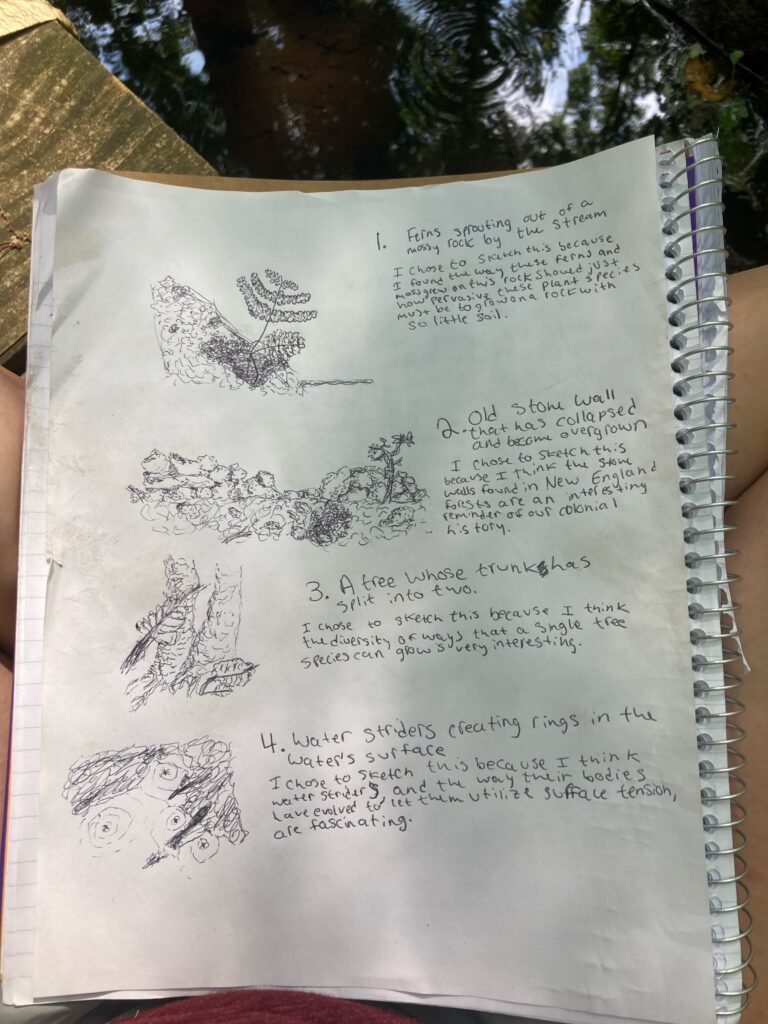 1. Ferns sprouting out of a
mossy rock by the stream
I chose to sketch this because
I found the way these ferns and
moss grew on this rock should just
how pervasive these plant species
must be to grow on a rock with
so little soil.
2. Old stone wall
that has collapsed
and become overgrown
I chose to sketch this
because I think the stone
walls found in New England
forests are an interesting
reminder of our colonial
history.
3. A tree whose trunk has
split into two.
I chose to sketch this because I think
the diversity of ways that a single tree
species can grow is very interesting.
4. Water striders creating rings in the
water's surface
I chose to sketch this because I think
water striders and the way their bodies
have evolved to let them utilize surface tension,
are fascinating.